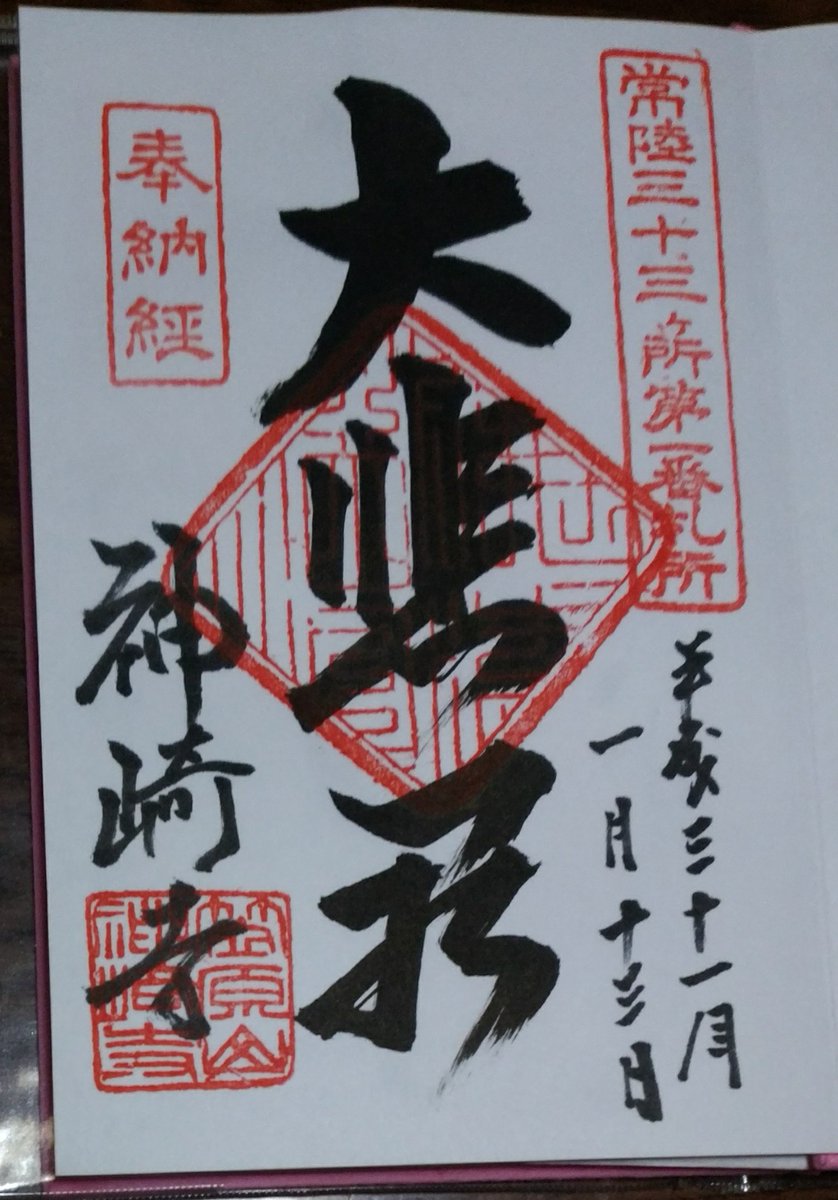 常陸三十三所第一番札所
平成三十一年
一月十三日
大悲殿
奉納經
神崎寺
笠原山
神崎寺